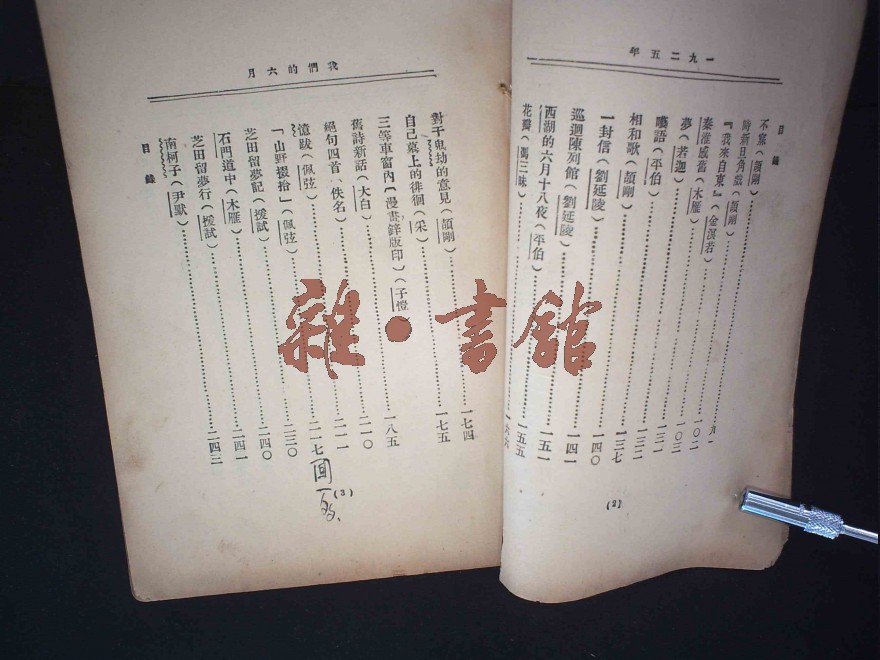 一九二五年
目錄
不寐（頡剛）
時新旦角戲（頡剛）
『我來自東』（金溟若） 九一
秦淮感舊（木雁） 一〇二
夢（若迦） 一〇三
囈語（平伯） 一三一
相和歌（頡剛） 一三二
一封信（劉延陵） 一三七
巡迴陳列館（劉延陵） 一四〇
西湖的六月十八夜（平伯） 一四一
花瓣（馮三昧） 一五一
一五五
一六六
(2)
我們的六月
對于鬼劫的意見（頡剛） 一七四
自己墓上的徘徊（采） 一七五
三等車窗內（漫畫鋅版印）（子愷
舊詩新話（大白） 一八五
絕句四首，佚名） 二一〇
憶跋（佩弦） 二一一
「山野掇拾」（佩弦） 二一七
芝田留夢記（援試） 二三〇
石門道中（木雁） 二四〇
芝田留夢行（援試） 二四一
南柯子（尹默） 二四二
目錄
(3)
雜·書館